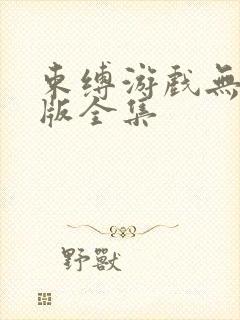 束缚游戏無
版全集
野獸